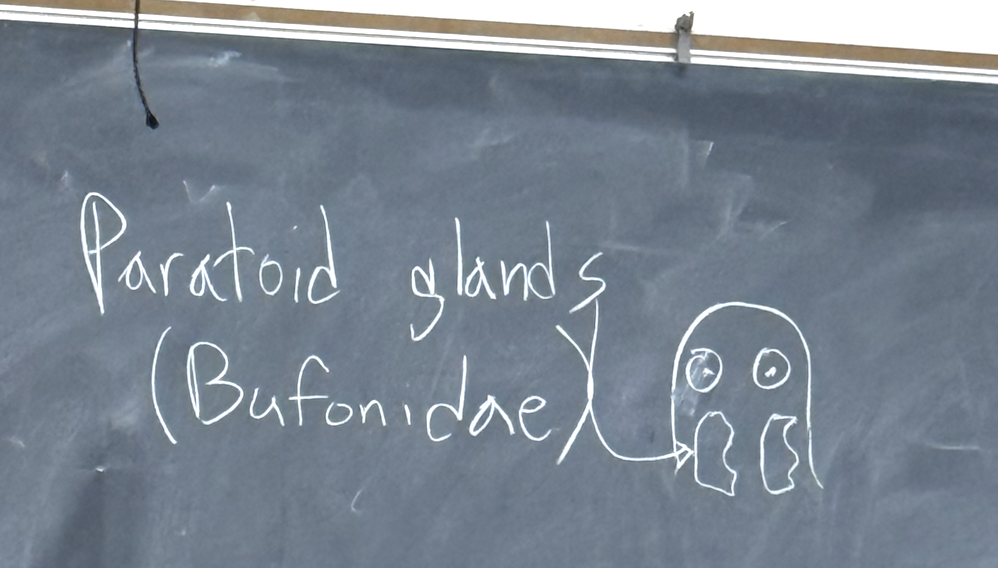 Paratoid glands
(Bufonidae)